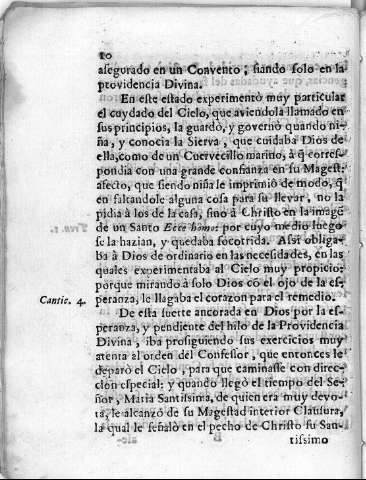 10
asegurado en un Convento; fiando solo en la
providencia Divina.
En este estado experimentò muy particular
el cuydado del Cielo, que aviendola llamado en
sus principios, la guardò, y governò quando ni-
ña, y conocia la Sierva, que cuidaba Dios de
ella, como de un Cuervecillo marino, à q̃ corres-
pondia con una grande confianza en su Magest.
afecto, que siendo niña le imprimiò de modo, q̃
en faltandole alguna cosa para su llevar, no la
pidia à los de la casa, sinò à Christo en la image
de un Santo Ecce homo: por cuyo medio luego
se la hazian, y quedaba socorrida. Assi obliga-
ba à Dios de ordinario en las necesidades, en las
quales experimentaba al Cielo muy propicio;
porque mirando à solo Dios cõ el ojo de la es-
Cantic. 4. peranza, le llagaba el corazon para el remedio.
De esta suerte ancorada en Dios por la es-
peranza, y pendiente del hilo de la Providencia
Divina, iba prosiguiendo sus exercicios muy
atenta al orden del Confessor, que entonces le
deparò el Cielo, para que caminasse con direc-
cion especial: y quando llegò el tiempo del Se-
ñor, Maria Santissima, de quien era muy devo-
ta, le alcanzò de su Magestad interior Clausura,
la qual le señalò en el pecho de Christo su San-
tissimo